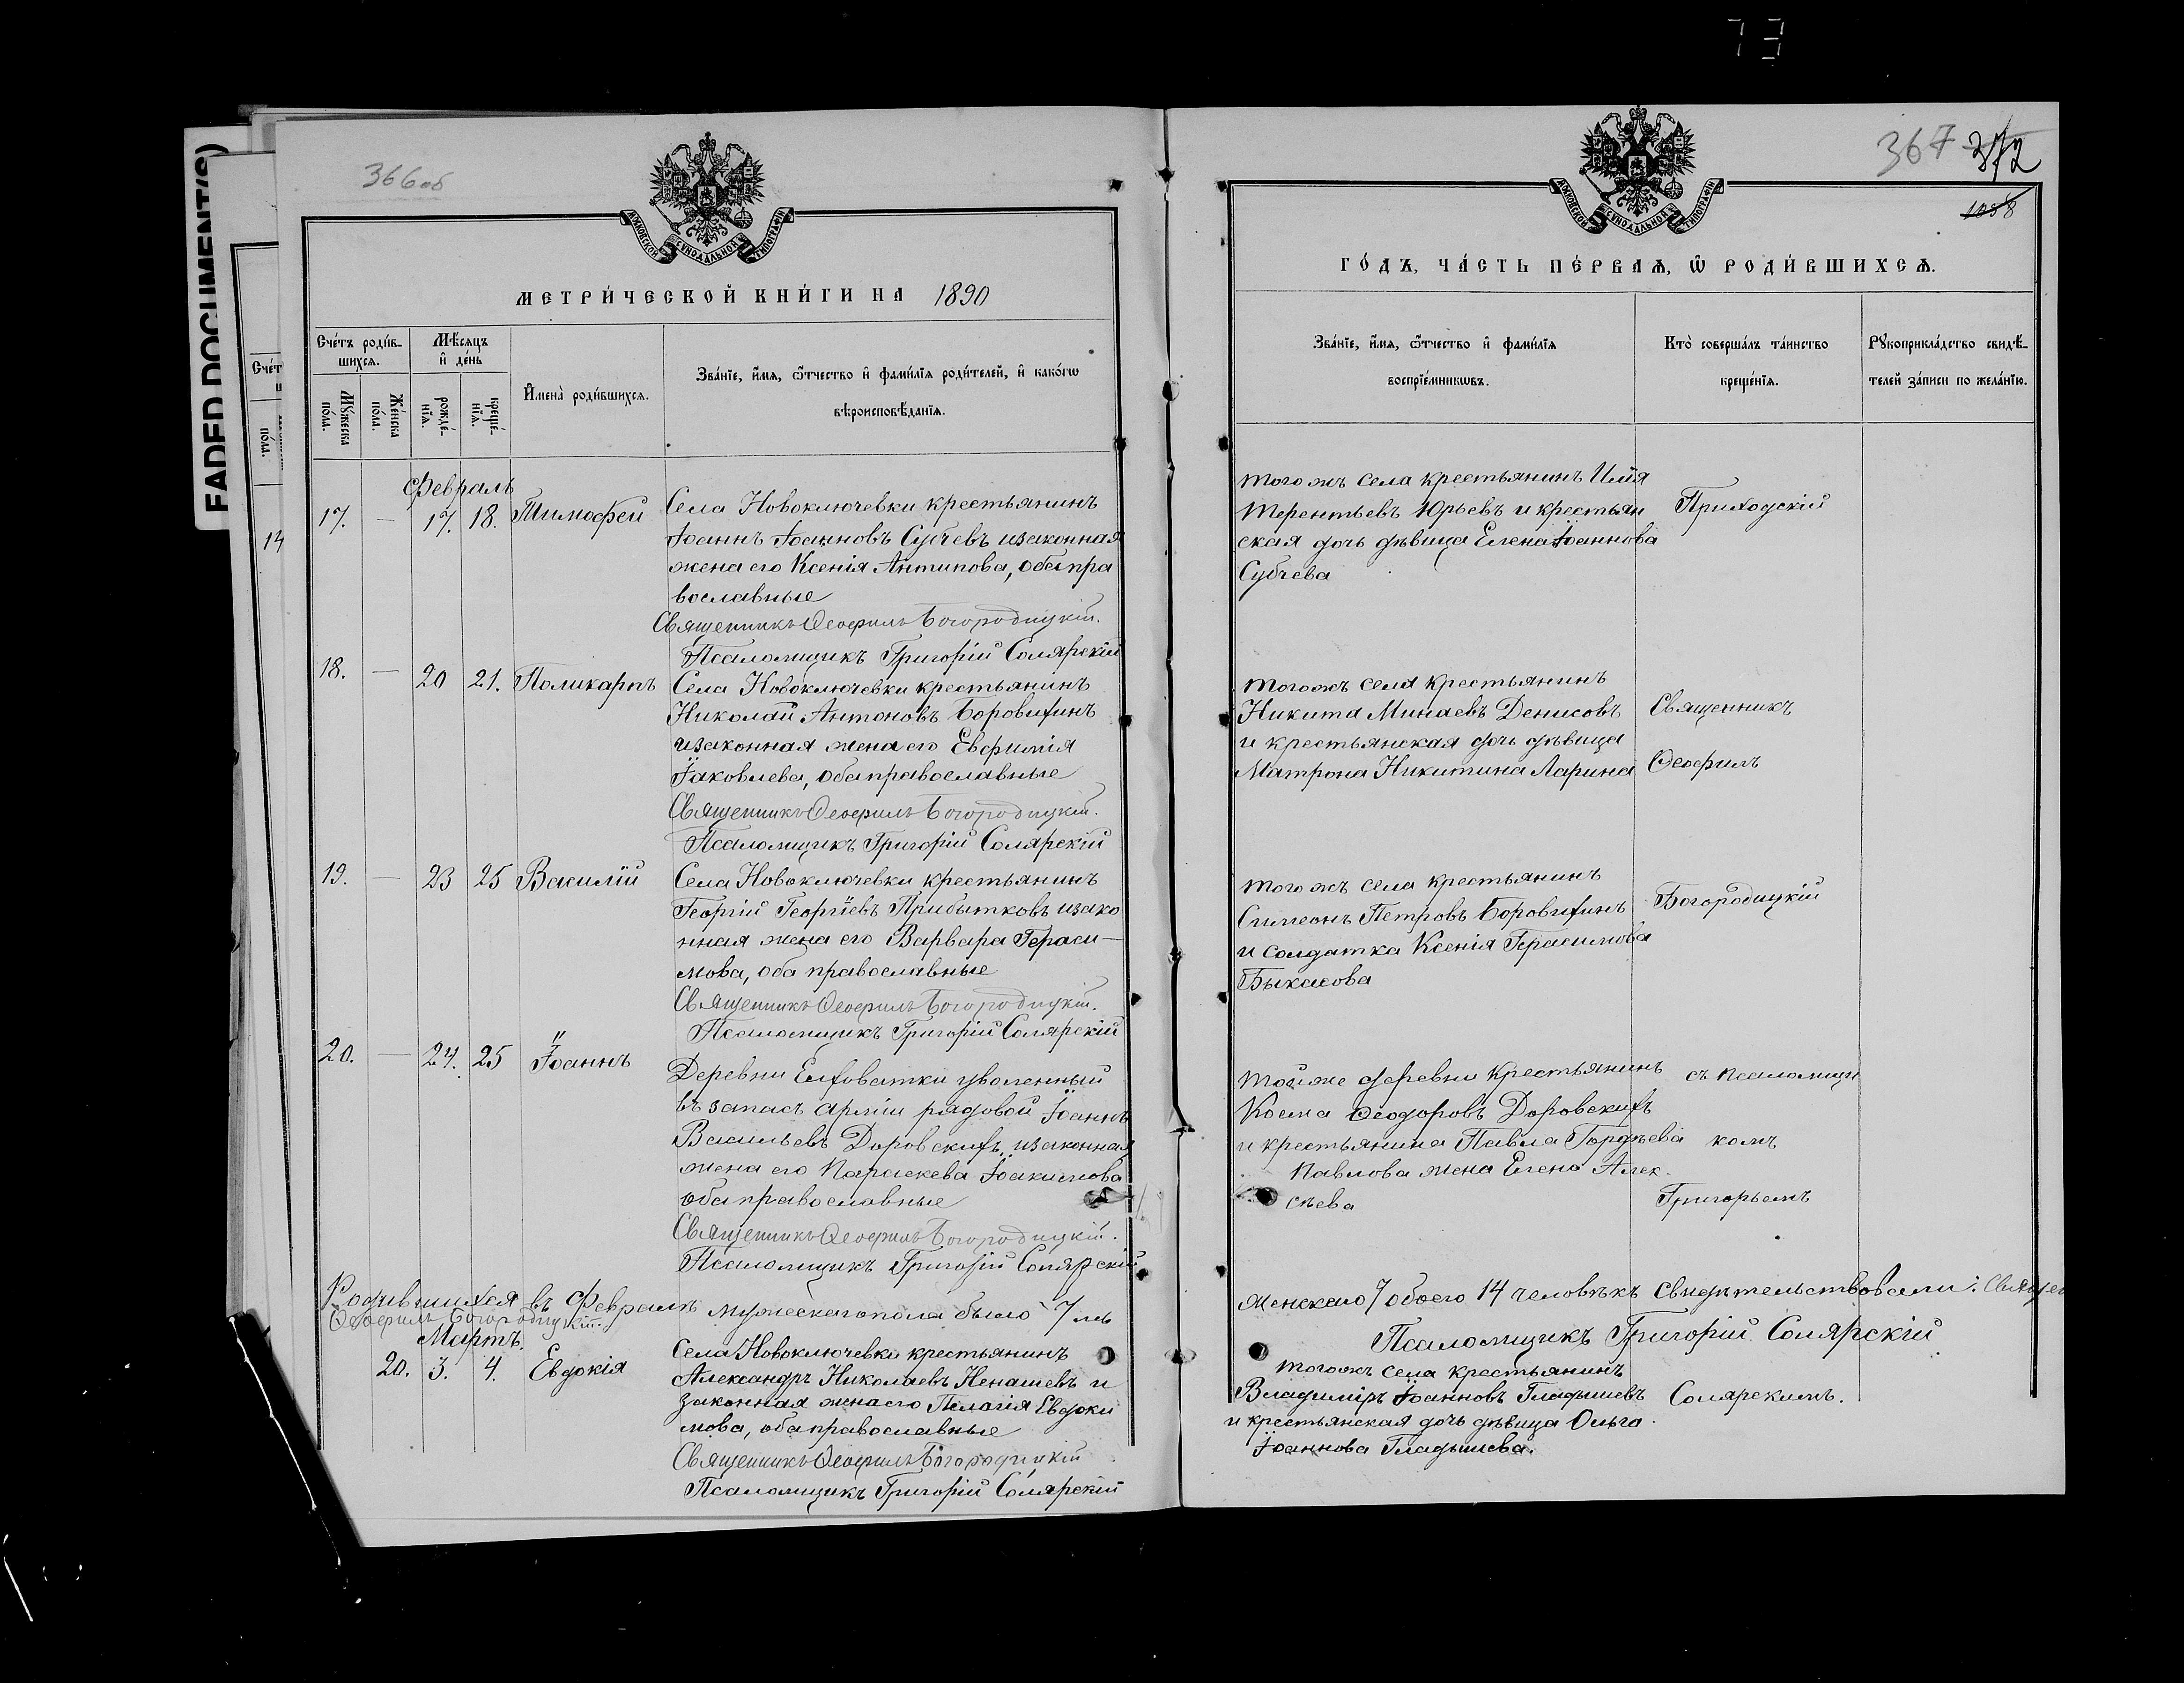 73
FADED DOCUMENT(S)
366об
МЕТРИ́ЧЕСКОЙ КНИ́ГИ НА 1890
Счéтъ роди́в-
шихсѧ.
Мѣ́сѧцъ
и҆ дéнь
Мꙋ́жеска пóла.
Жéнска пóла.
рождé-
нїѧ.
крещé-
нїѧ.
И҆мена̀ роди́вшихсѧ.
Звáнїе, и҆́мѧ, ѻ҆́тчество и҆ фами́лїѧ роди́телей, и҆ какóгѡ
вѣроисповѣ́данїѧ.
Февраль
17. — 17. 18. Тимофей
Села Новоключевки крестьянинъ
Іоаннъ Іоанновъ Субчевъ изаконная
жена его Ксенія Антипова, оба пра
вославные
Священникъ Ѳеофилъ Богородицкій.
Псаломщикъ Григорій Солярскій
18. — 20 21. Поликарпъ
Села Новоключевки крестьянинъ
Николай Антоновъ Боровихинъ
изаконная жена его Евфимія
Іаковлева, оба православные
Священникъ Ѳеофилъ Богородицкій.
Псаломщикъ Григорій Солярскій
19. — 23 25 Василій
Села Новоключевки крестьянинъ
Георгій Георгіевъ Прибытковъ изако
нная жена его Варвара Гераси-
мова, оба православные
Священникъ Ѳеофилъ Богородицкій.
Псаломщикъ Григорій Солярскій
20. — 24. 25 Іоаннъ
Деревни Елховатки уволенный
въ запасъ арміи рядовой Іоаннъ
Васильевъ Доровскихъ, изаконная
жена его Параскева Іоакимова
оба православные
Священникъ Ѳеофилъ Богородицкій.
Псаломщикъ Григорій Солярскій
Родившихся въ Февралѣ мужескаго пола было 7 мь
Ѳеофилъ Богородицкій.
Мартъ.
20. 3. 4. Евдокія
Села Новоключевки крестьянинъ
Александръ Николаевъ Ненашевъ и
законная жена его Пелагія Евдоки
мова, оба православные
Священникъ Ѳеофилъ Богородицкій
Псаломщикъ Григорій Солярскій
367 372
1058
ГÓДЪ, ЧÁСТЬ ПÉРВАѦ, Ѽ РОДИ́ВШИХСѦ.
Звáнїе, и҆́мѧ, ѻ҆́тчество и҆ фами́лїѧ
воспрїéмникѡвъ.
Ктò совершáлъ тáинство
крещéнїѧ.
Рꙋкоприклáдство свидѣ́-
телей зáписи по желáнїю.
Тогожъ села крестьянинъ Илія
Терентьевъ Юрьевъ и крестьян
ская дочь дѣвица Елена Іоаннова
Субчева
Приходскій
Тогожъ села крестьянинъ
Никита Минаевъ Денисовъ
и крестьянская дочь дѣвица
Матрона Никитина Ларина
Священникъ
Ѳеофилъ
Тогожъ села крестьянинъ
Симеонъ Петровъ Боровихинъ
и солдатка Ксенія Герасимова
Быкасова
Богородицкій
Тойже деревни крестьянинъ
Косма Ѳеодоровъ Доровскихъ
и крестьянина Павла Гордѣева
Павлова жена Елена Алек-
сѣева
съ псаломщи
комъ
Григорьемъ
женскаго 7 обоего 14 человѣкъ Свидѣтельствовали: Священ
Псаломщикъ Григорій Солярскій
Тогожъ села крестьянинъ
Владиміръ Іоанновъ Гладышевъ
и крестьянская дочь дѣвица Ольга
Іоаннова Гладышева.
Солярскимъ.